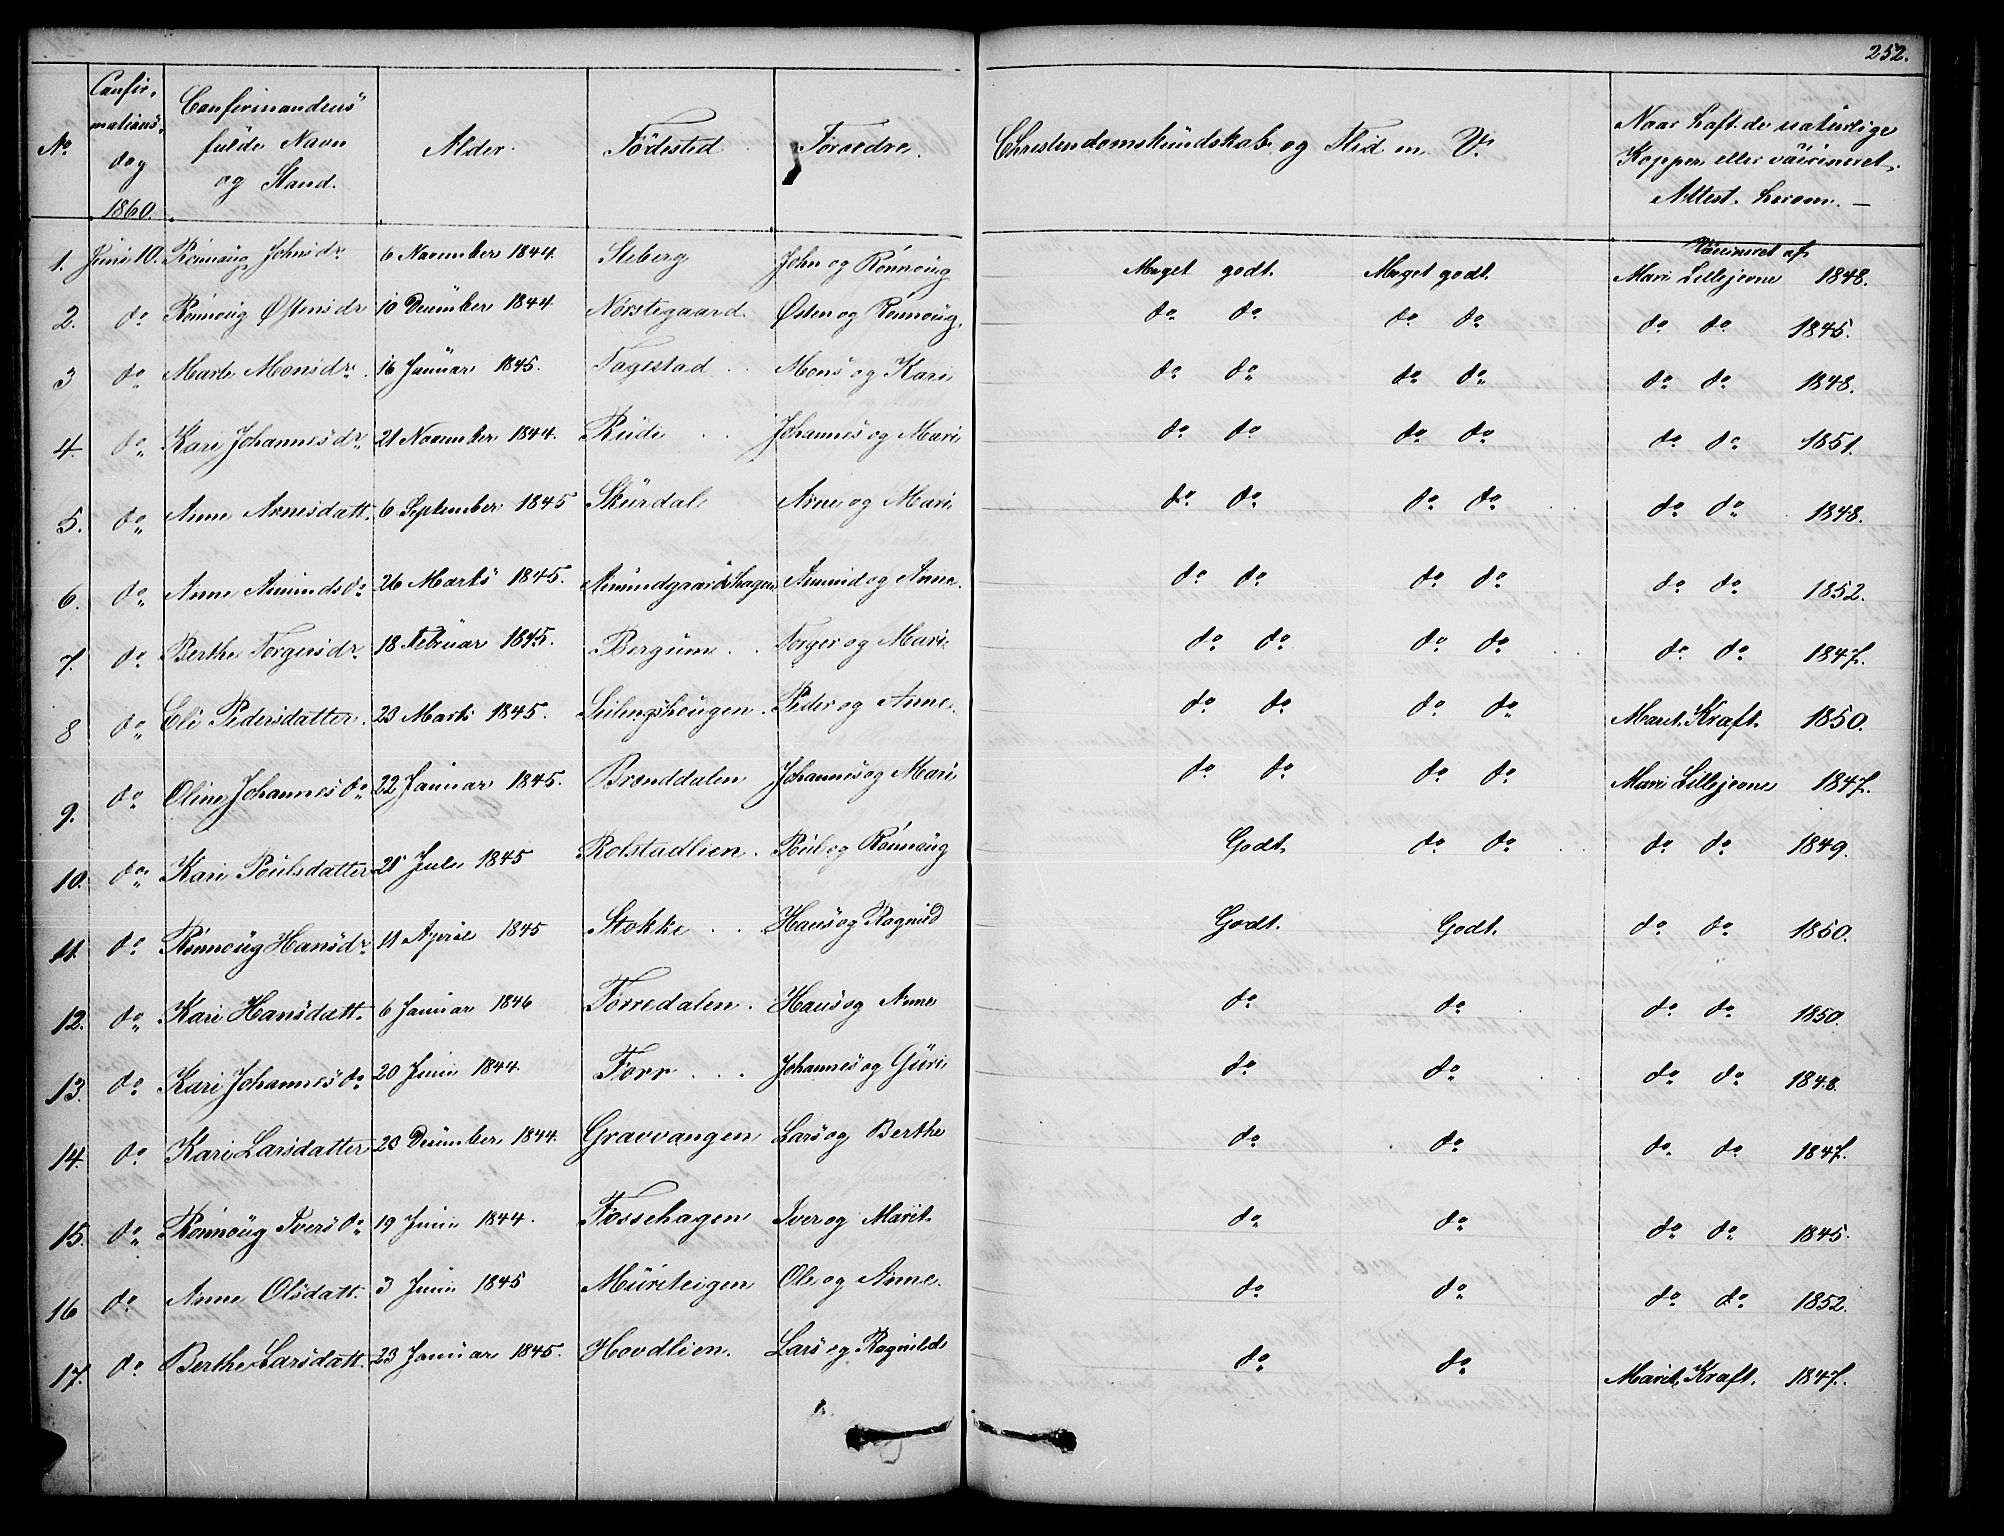 252.
No. Confirmations-dag 1860. Confirmandens fulde Navn og Stand. Alder. Födested Foreldre. Christendomskundskab og Flid m. V. Naar haft de naturlige Kopper eller vaccineret. Attest herom. —
1. Juni 10. Rönnoug Johnsdr 6 November 1844. Steberg John og Rönnoug Meget godt. Meget godt. Vaccineret af Mari Lillejorne 1848.
2. do Rönnoug Østensdr 10 December 1844 Nörstegaard Østen og Rönnoug. do do do do do do 1845.
3 do Marte Monsdr. 16 Januar 1845. Fagestad Mons og Kari do do do do do do 1848.
4. do Kari Johannesdr 21 November 1844. Rude Johannes og Mari do do do do do do 1851.
5. do Anne Arnesdatt. 6 September 1845 Skurdal Arne og Mari do do do do do do 1848.
6. do Anne Amundsdr 26 Marts 1845. Amundgaardshagen Amund og Anne. do do do do do do 1852.
7. do Berthe Torgersdr. 18 Februar 1845. Bergum Torger og Mari do do do do do do 1847.
8 do Eli Pedersdatter 23 Marts 1845. Seilingshougen. Peder og Anne. do do do do Marit Kraft. 1850.
9. do Oline Johannesdr 22 Januar 1845. Brenddalen Johannes og Mari do do do do Mari Lillejorne 1847.
10. do Kari Poulsdatter 21 Juli 1845 Rolstadlien. Poul og Rönnoug Godt. do do do do 1849.
11. do Rönnoug Hansdr. 11 April 1845 Stokke Hans og Ragnild Godt. Godt. do do 1850.
12. do Kari Hansdatt. 6 Januar 1846 Forredalen. Hans og Anne do do do do 1850.
13. do Kari Johannesdr 20 Juni 1844 Forr Johannes og Guri do do do do 1848.
14. do Kari Larsdatter 20 December 1844. Gravvangen Lars og Berthe do do do do 1847.
15. do Rönnoug Iversdr 19 Juni 1844. Fossehagen Iver og Marit do do do do 1845.
16 do Anne Olsdatt. 3 Juni 1845 Mureteigen Ole og Anne. do do do do 1852.
17. do Berthe Larsdatt. 23 Januar 1845. Hovdlien. Lars og Ragnild do do Marit Kraft. 1847.